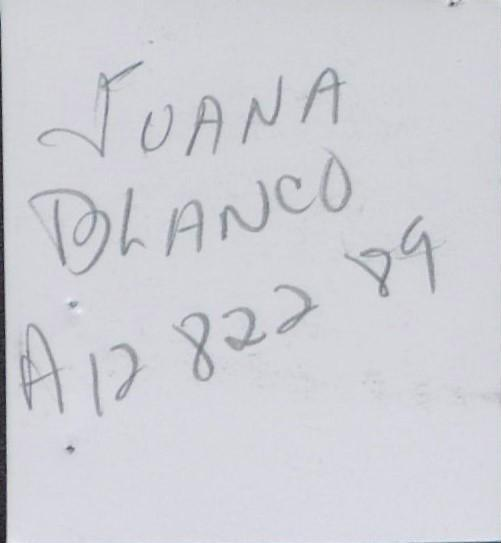 JUANA
BLANCO
A12 822 89